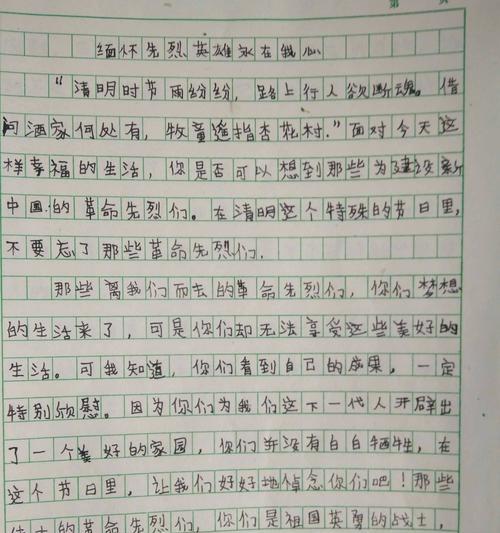 第 页
缅怀先烈英雄永在我心
“清明时节雨纷纷，路上行人欲断魂。借
问酒家何处有，牧童遥指杏花村.”面对今天这
样幸福的生活，你是否可以想到那些为建设新
中国的革命先烈们。在清明这个特殊的节日里，
不要忘了那些革命先烈们.
那些离我们而去的革命先烈们，你们梦想
的生活来了，可是你们却无法享受这些美好的
生活。可我知道，你们看到自己的成果，一定
特别欣慰。因为你们为我们这下一代人开辟出
了一个美好的家园，你们并没有白白牺牲，在
这个节日里，让我们好好地悼念你们吧！那些
的革命先烈们，你们是祖国英勇的战士，